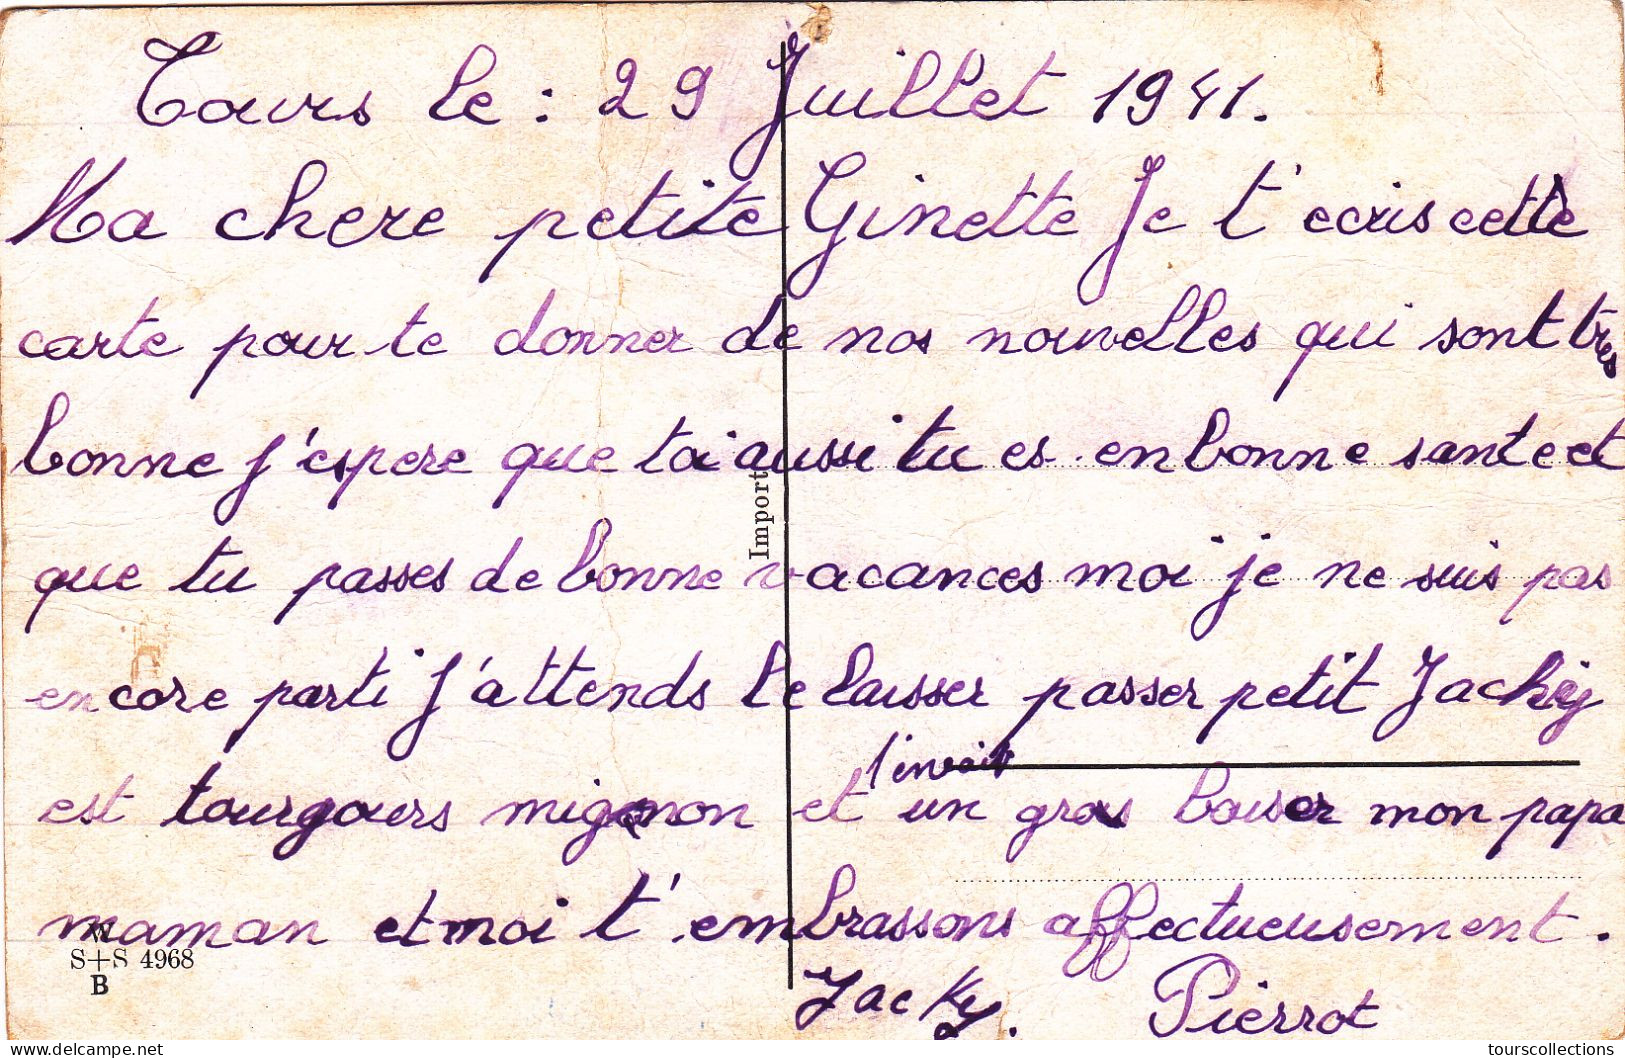 Tours le : 29 Juillet 1941.
Ma chere petite Ginette Je t'ecris cette
carte pour te donner de nos nouvelles qui sont tres
bonne j'espere que toi aussi tu es en bonne sante et
Import
que tu passes de bonne vacances moi je ne suis pas
encore parti J'attends le laisser passer petit Jacky
l'envoit
est tourgours mignon et un gros baiser mon papa
maman et moi t'embrassons affectueusement.
W
S+S 4968
B
Jacky. Pierrot
tourscollections